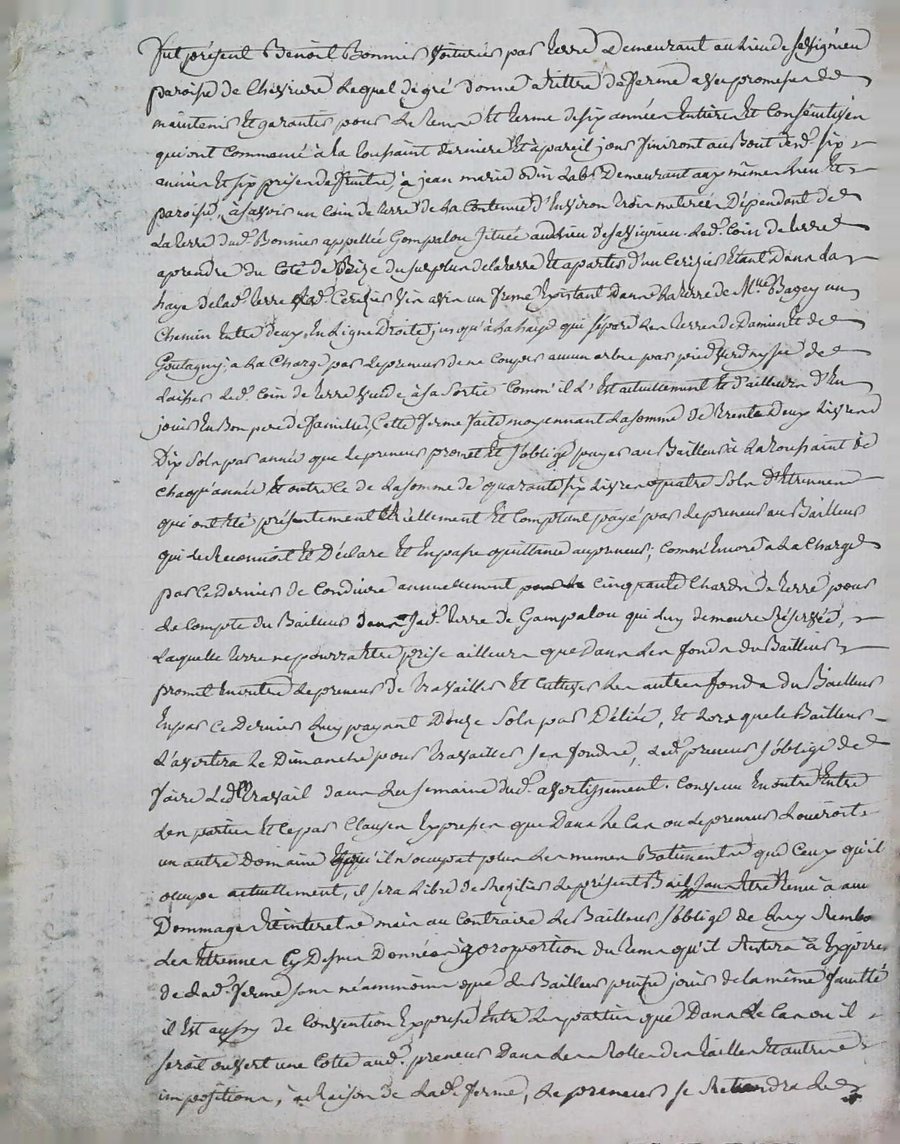 fut présent Benoit Bonnier voiturier par terre Demeurant au lieu de Savignieu
paroisse de Chevriere Lequel de gré donne a tittre de ferme avec promesse de
maintenir Et garantir pour Le tems Et terme de six années Entieres Et Consécutives
qui ont Commencé à la toussaint derniere Et à pareil jour finiront au Bout desd. six
années Et six prises de fruits, à jean marie odin Labr. Demeurant aux mêmes lieu Et
paroisse, à savoir un Coin de terre de La Contenue d'Environ trois meterées Dépendant de
La terre dud. Bonnier appellée Gompalou située audit lieu de Savignieu. Led. Coin de terre
aprendre du Coté de Bize du surplus de la terre Et apartir d'un Cerisier Etant dans la
haye de lad. terre led. Cerisier vis avis un freine Existant dans la terre de Mr. Bagey un
Chemin Entre deux, En Ligne Droite jusqu'à La haye qui sépare Les terres de Damien Et de
Goutagny; a La Charge par Le preneur de ne Couper aucun arbre par pied verd ny sec de
Laisser Led. Coin de terre vuide à sa sortie Comm'il L'Est actuellement Et d'ailleurs d'En
jouir En Bon pere de famille, Cette ferme faite moyennant La somme de trente deux Livres
Dix sols par année que Le preneur promet Et s'oblige payer au Bailleur à La toussaint de
chaqu'année Et outre Ce de La somme de quarante six Livres quatre sols d'Etrennes
qui ont Eté présentement Et réellement Et Comptant payé par Le preneur au Bailleur
qui Le Reconnoit Et Déclare Et En passe quittance au preneur; Comm'Encore a La Charge
par Ce dernier de Conduire annuellement cinquante Chards de terre pour
Le compte du Bailleur dans Lad. terre de Gampalou qui Luy demeure Réservée,
Laquelle terre ne pourra Etre prise ailleurs que dans Les fonds du Bailleur
promet En outre Le preneur de travailler Et Cultiver Les autres fonds du Bailleur
En par Ce Dernier Luy payant Douze sols par Délié, Et Lors que le Bailleur
L'avertira Le Dimanche pour travailler ses fonds, Led. preneur s'oblige de
faire Led. travail dans La semaine dud. avertissement. Convenu En outre Entre
Les parties Et Ce par Clauses Expresses que Dans Le Cas ou Le preneur Loueroit
un autre Domaine qu'il n'occupat plus Les mêmes Batiments que Ceux qu'il
occupe actuellement, il sera Libre de Resilier Le présent Bail sans Etre tenu à aucuns
Dommages Et interets mais au Contraire Le Bailleur s'oblige de Luy Rembo
Les Etrennes Cy Dessus Données à proportion du tems qu'il Restera à Expirer
de Lad. ferme sans néammoins que Le Bailleur puisse jouir de la même faculté
il Est aussy de Convention Expresse Entre Les parties que Dans Le Cas ou il
seroit ouvert une Cotte aud. preneur Dans Les Rolles des tailles Et autres
impositions, à Raison de Lad. ferme, Le preneur se Retiendra Le